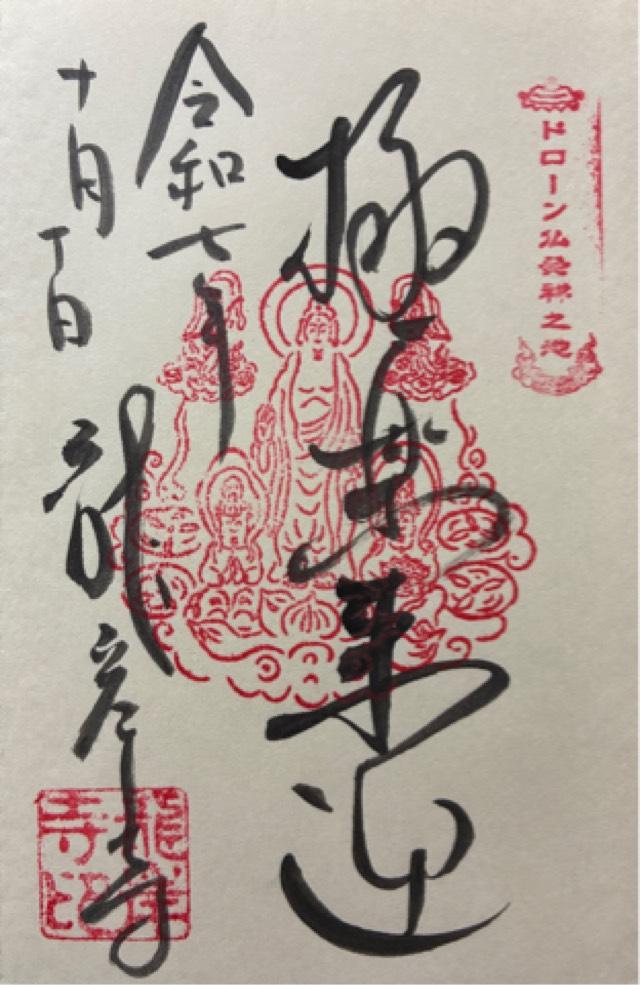 ドローン仏発祥之地
極楽来迎
令和七年
十月 日 龍岸寺
龍岸寺印